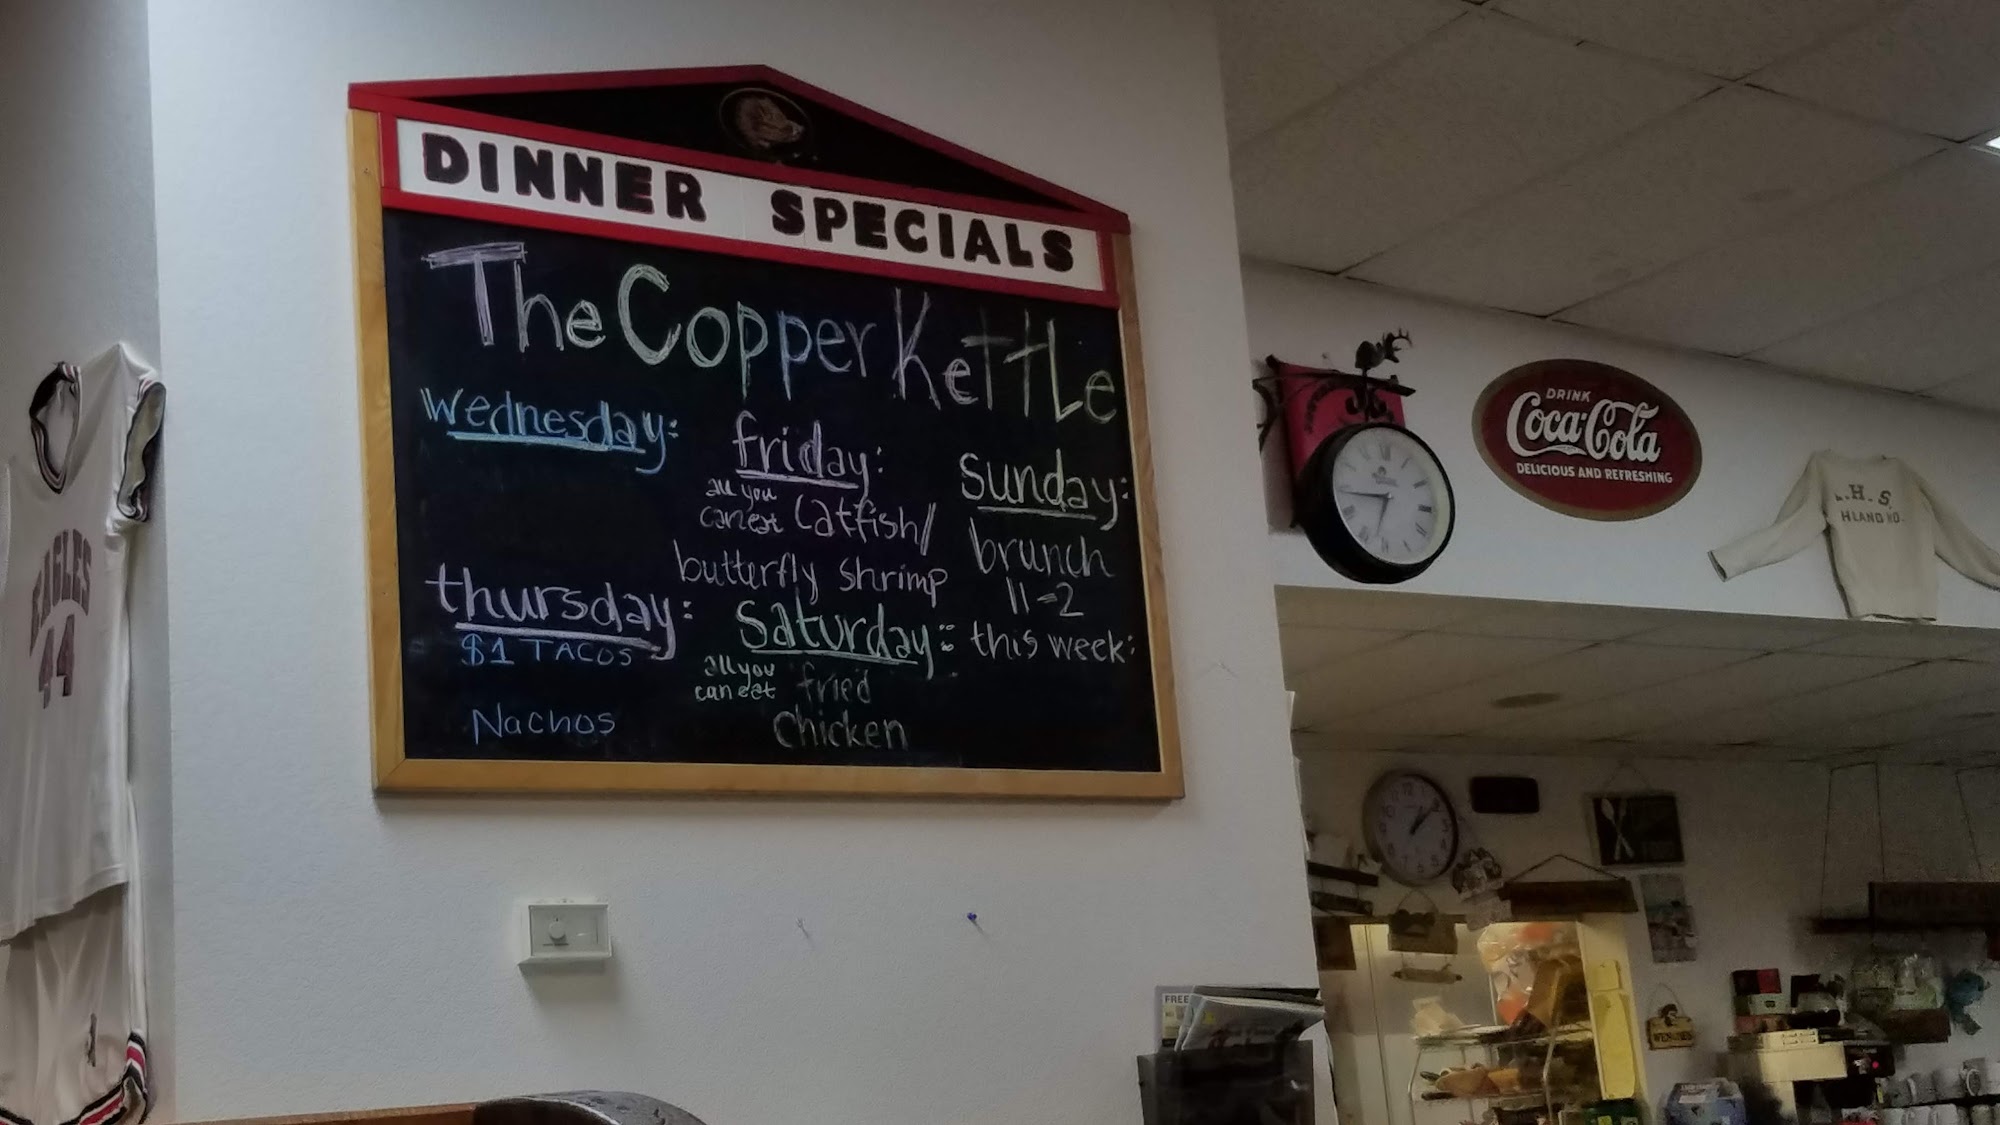 DINNER SPECIALS
The Copper Kettle
Wednesday:
thursday:
$1 TACOS
Nachos
friday:
all you
can eat catfish/
butterfly shrimp
Saturday:
all you
can eat fried
chicken
Sunday:
brunch
11-2
this week:
EAGLES
44
DRINK
Coca-Cola
DELICIOUS AND REFRESHING
.H.S.
HLAND
FREE